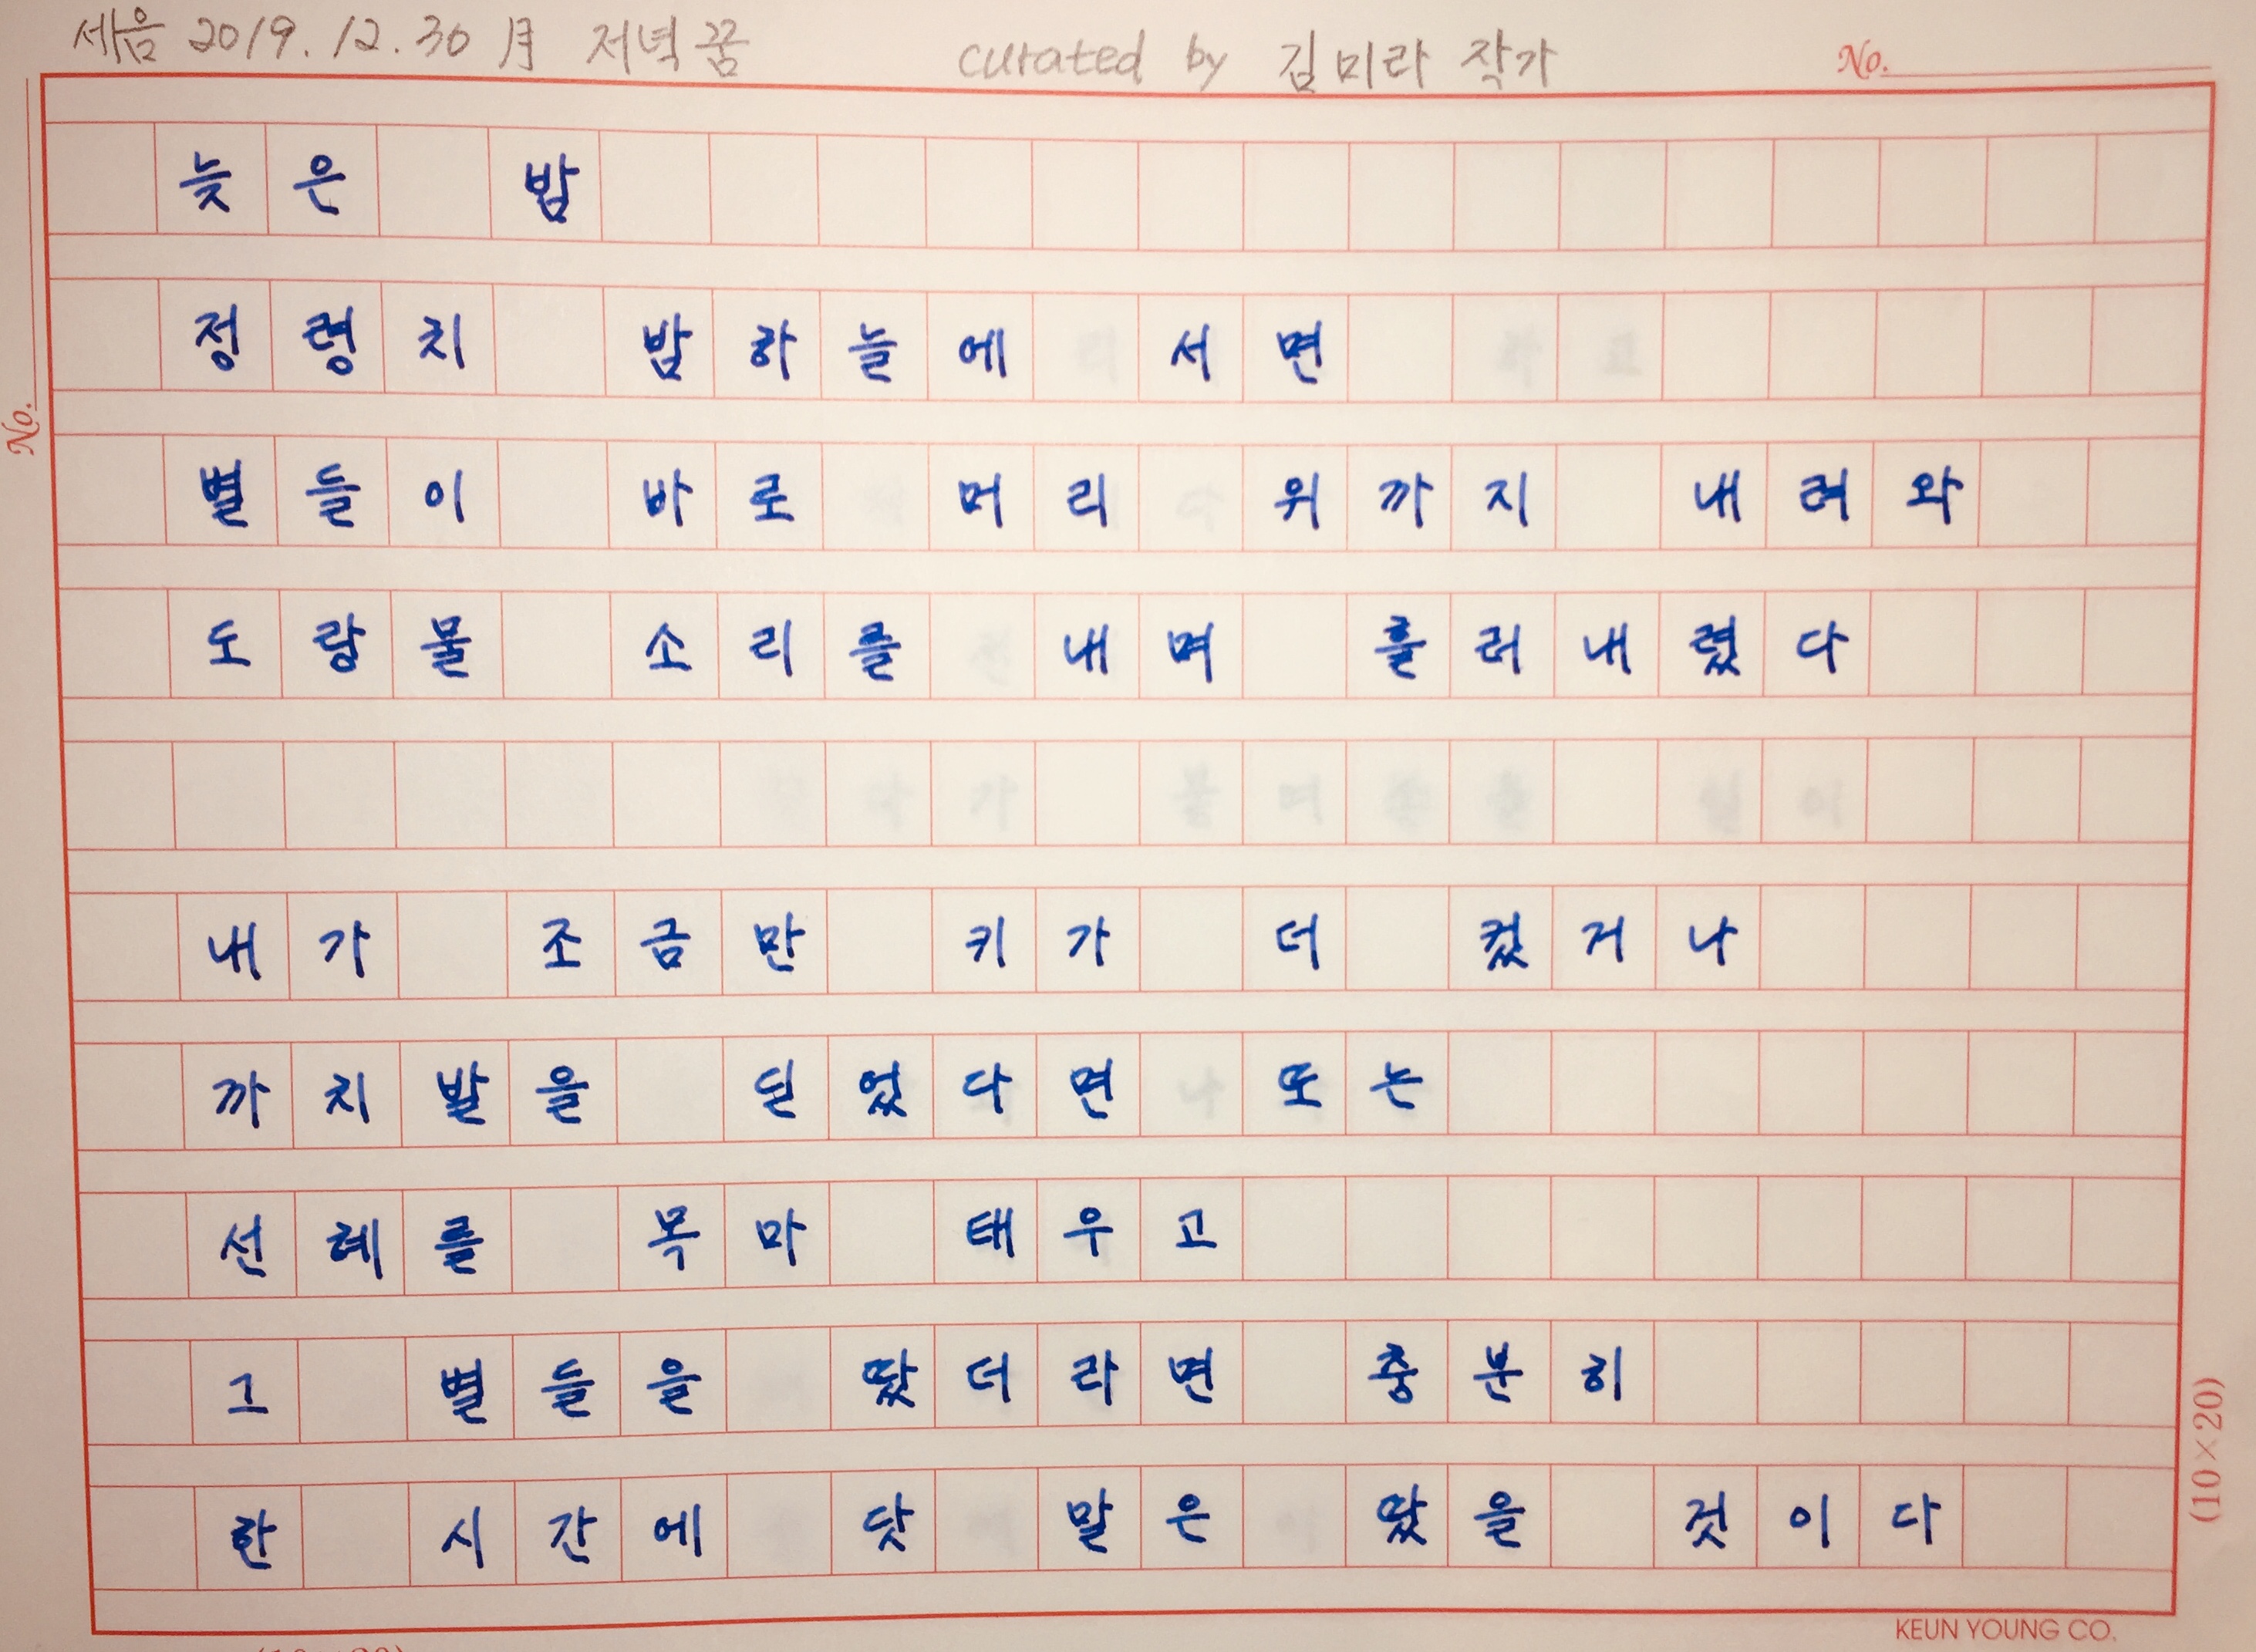 세음 2019.12.30 月 저녁꿈 curated by 김미라 작가
No.
No.
늦은 밤
정령치 밤하늘에 서면
별들이 바로 머리 위까지 내려와
도랑물 소리를 내며 흘러내렸다
내가 조금만 키가 더 컸거나
까치발을 딛었다면 또는
선례를 목마 태우고
그 별들을 땄더라면 충분히
한 시간에 닷 말은 땄을 것이다
(10×20)
KEUN YOUNG CO.